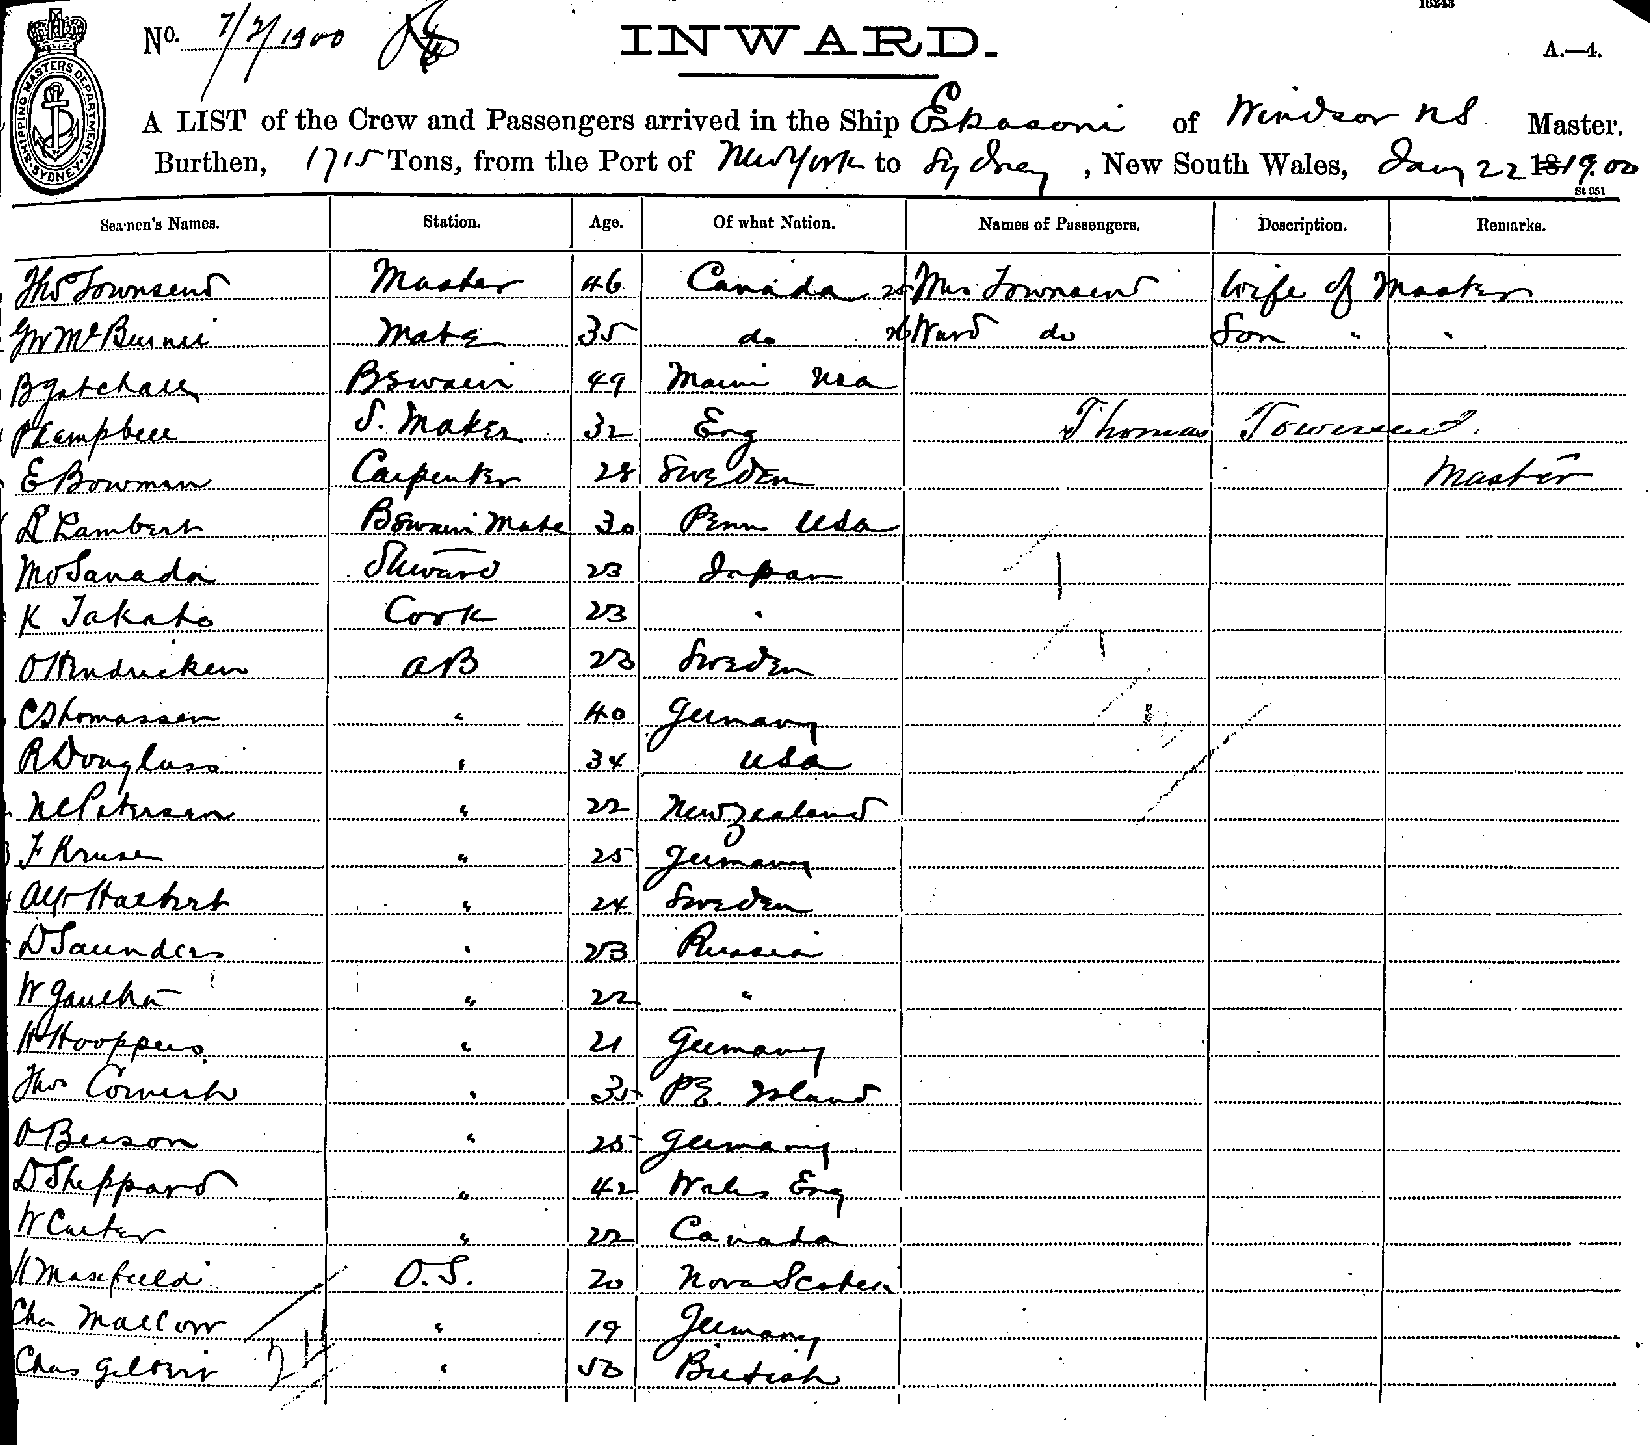 16243
No. 7/2/1900 INWARD. A.—4.
SHIPPING MASTERS DEPARTMENT. SYDNEY.
A LIST of the Crew and Passengers arrived in the Ship Ekasoni of Windsor NS Master,
Burthen, 1715 Tons, from the Port of New York to Sydney, New South Wales, Jany 22 1900
St 051
Seamen's Names. Station. Age. Of what Nation. Names of Passengers. Description. Remarks.
Thos Townsend Master 46 Canada 25 Mrs Townsend Wife of Master
Mate 35 do 26 Ward do Son " "
B Gatchell BSwain 49 Maine USA
P Campbell S. Maker 32 Eng Thomas Townsend.
E Bowman Carpenter 28 Sweden Master
L Lambert BSwain Mate 30 Penn USA
Mo Sanada Steward 23 Japan
K Takato Cook 23 "
O Hendricken AB 23 Sweden
C Thomassen " 40 Germany
R Douglass " 34 USA
N C Petersen " 22 New Zealand
F Kruse " 25 Germany
" 24 Sweden
D Saunders " 23 Russia
W " 22 "
H Hooppers " 21 Germany
Thos Cornish " 35 PE Island
O Beison " 25 Germany
D Sheppard " 42 Wales Eng
W Carter " 22 Canada
H Maxfield O.S. 20 Nova Scotia
Chas " 19 Germany
Chas Gilbert 24 " 50 British